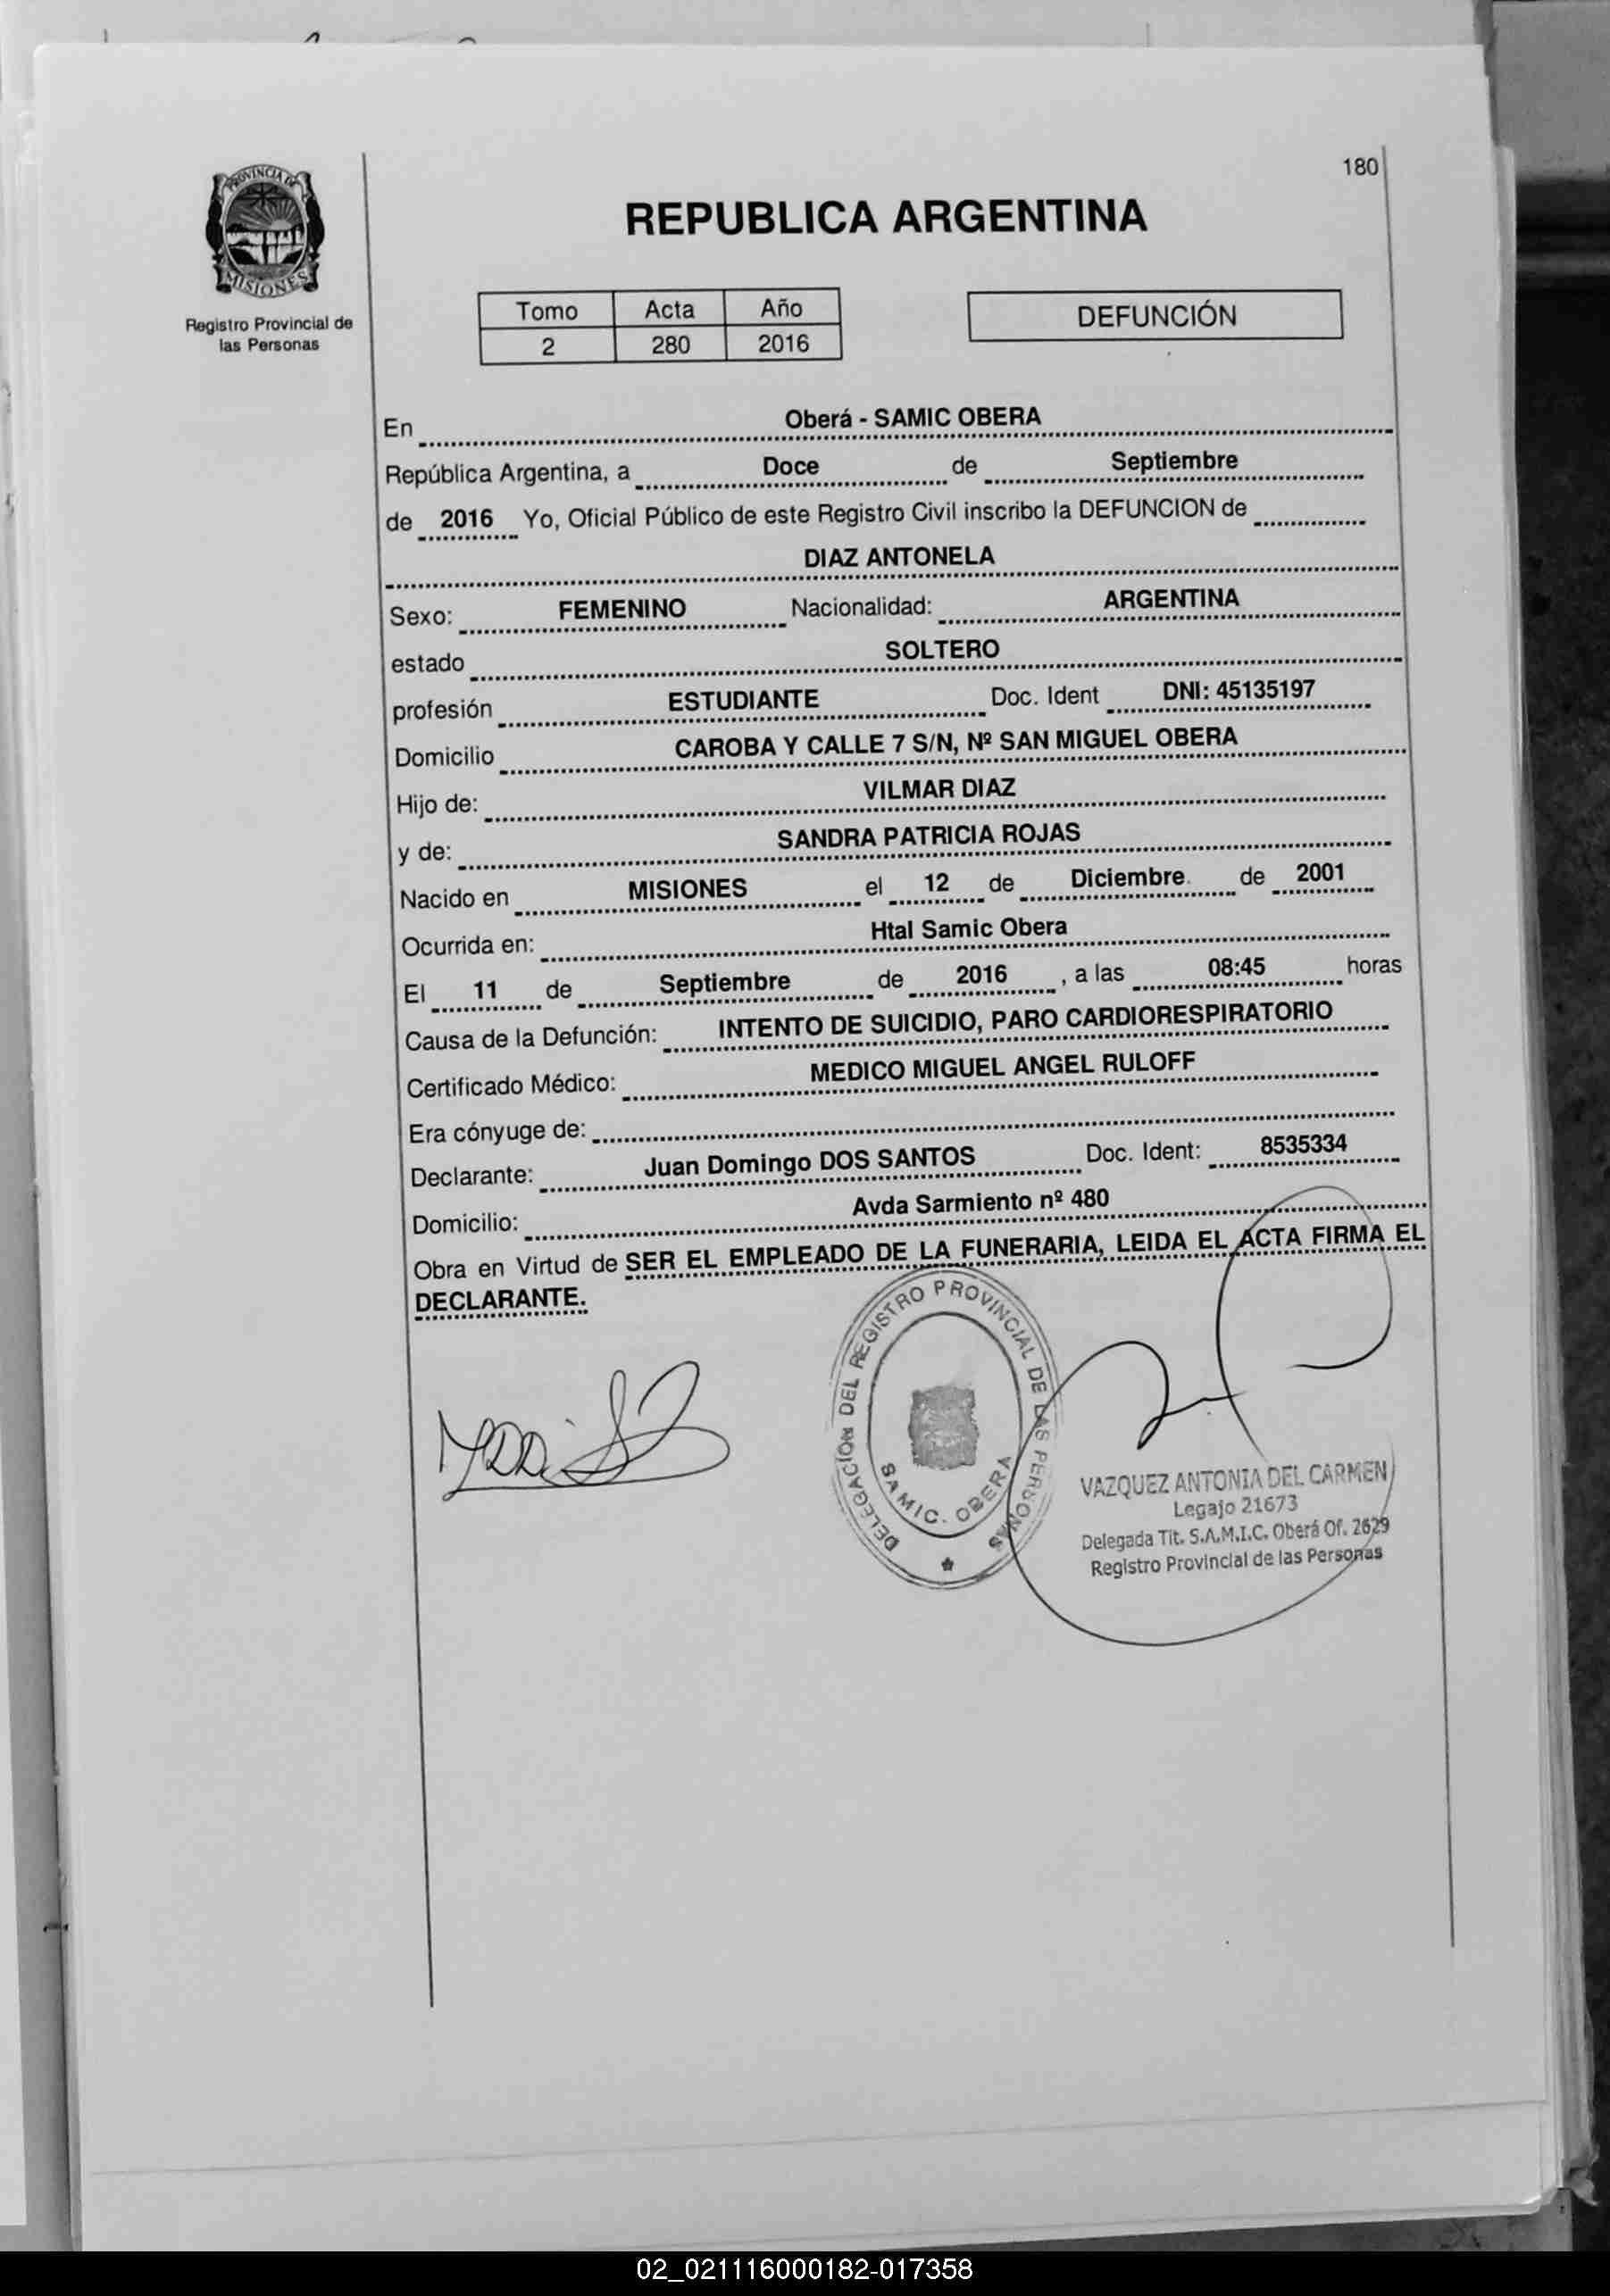 180
PROVINCIA DE
MISIONES
Registro Provincial de
las Personas
REPUBLICA ARGENTINA
Tomo Acta Año
2 280 2016
DEFUNCIÓN
En Oberá - SAMIC OBERA
República Argentina, a Doce de Septiembre
de 2016 Yo, Oficial Público de este Registro Civil inscribo la DEFUNCION de
DIAZ ANTONELA
Sexo: FEMENINO Nacionalidad: ARGENTINA
estado SOLTERO
profesión ESTUDIANTE Doc. Ident DNI: 45135197
Domicilio CAROBA Y CALLE 7 S/N, Nº SAN MIGUEL OBERA
Hijo de: VILMAR DIAZ
y de: SANDRA PATRICIA ROJAS
Nacido en MISIONES el 12 de Diciembre. de 2001
Ocurrida en: Htal Samic Obera
El 11 de Septiembre de 2016 , a las 08:45 horas
Causa de la Defunción: INTENTO DE SUICIDIO, PARO CARDIORESPIRATORIO
Certificado Médico: MEDICO MIGUEL ANGEL RULOFF
Era cónyuge de:
Declarante: Juan Domingo DOS SANTOS Doc. Ident: 8535334
Domicilio: Avda Sarmiento nº 480
Obra en Virtud de SER EL EMPLEADO DE LA FUNERARIA, LEIDA EL ACTA FIRMA EL
DECLARANTE.
DELEGACION DEL REGISTRO PROVINCIAL DE LAS PERSONAS
SAMIC. OBERA
VAZQUEZ ANTONIA DEL CARMEN
Legajo 21673
Delegada Tit. S.A.M.I.C. Oberá Of. 2629
Registro Provincial de las Personas
02_021116000182-017358